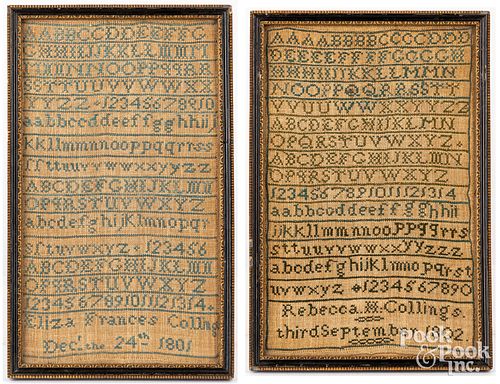 AABBCCDDEEFFG
GHHIIJJKKLLMMM
NNNOOPPQQRRS
STTUUVVWWXX
YYZZ 12345678910
aabbccddeeffgghhiij
kkllmmnnooppqqrrss
ſſttuuvvwwxxyyzz
ABCDEFGHIJKLMN
OPQRSTUVWXYZ
abcdefghijKlmnopq
rſtuvwxyz 123456
ABCDEFGHIJKLMN
OPQRSTUVWXYZ
1234567891011121314
Eliza Frances Collins
Dec.r the 24th 1801
AAAABBBBCCCCDDD
DEEEEFFFFGGGG
HHHHIIJJKKLLMMN
NOOPPQQRRSSTT
VVUUWWXXYYZZ
ABCDEFGHIJKLMN
OPQRSTUVWXYZ
ABCDEFGHIJKLMN
OPQRSTUVWXYZ
1234567891011121314
aabbccddeeffgghhii
jjkkllmmnnooppqqrrs
sttuuvvwwxxyyzz
abcdefghijKlmnopqrst
uvwxyz 1234567890
Rebecca Collings
third September 1802
Pook & Pook inc.